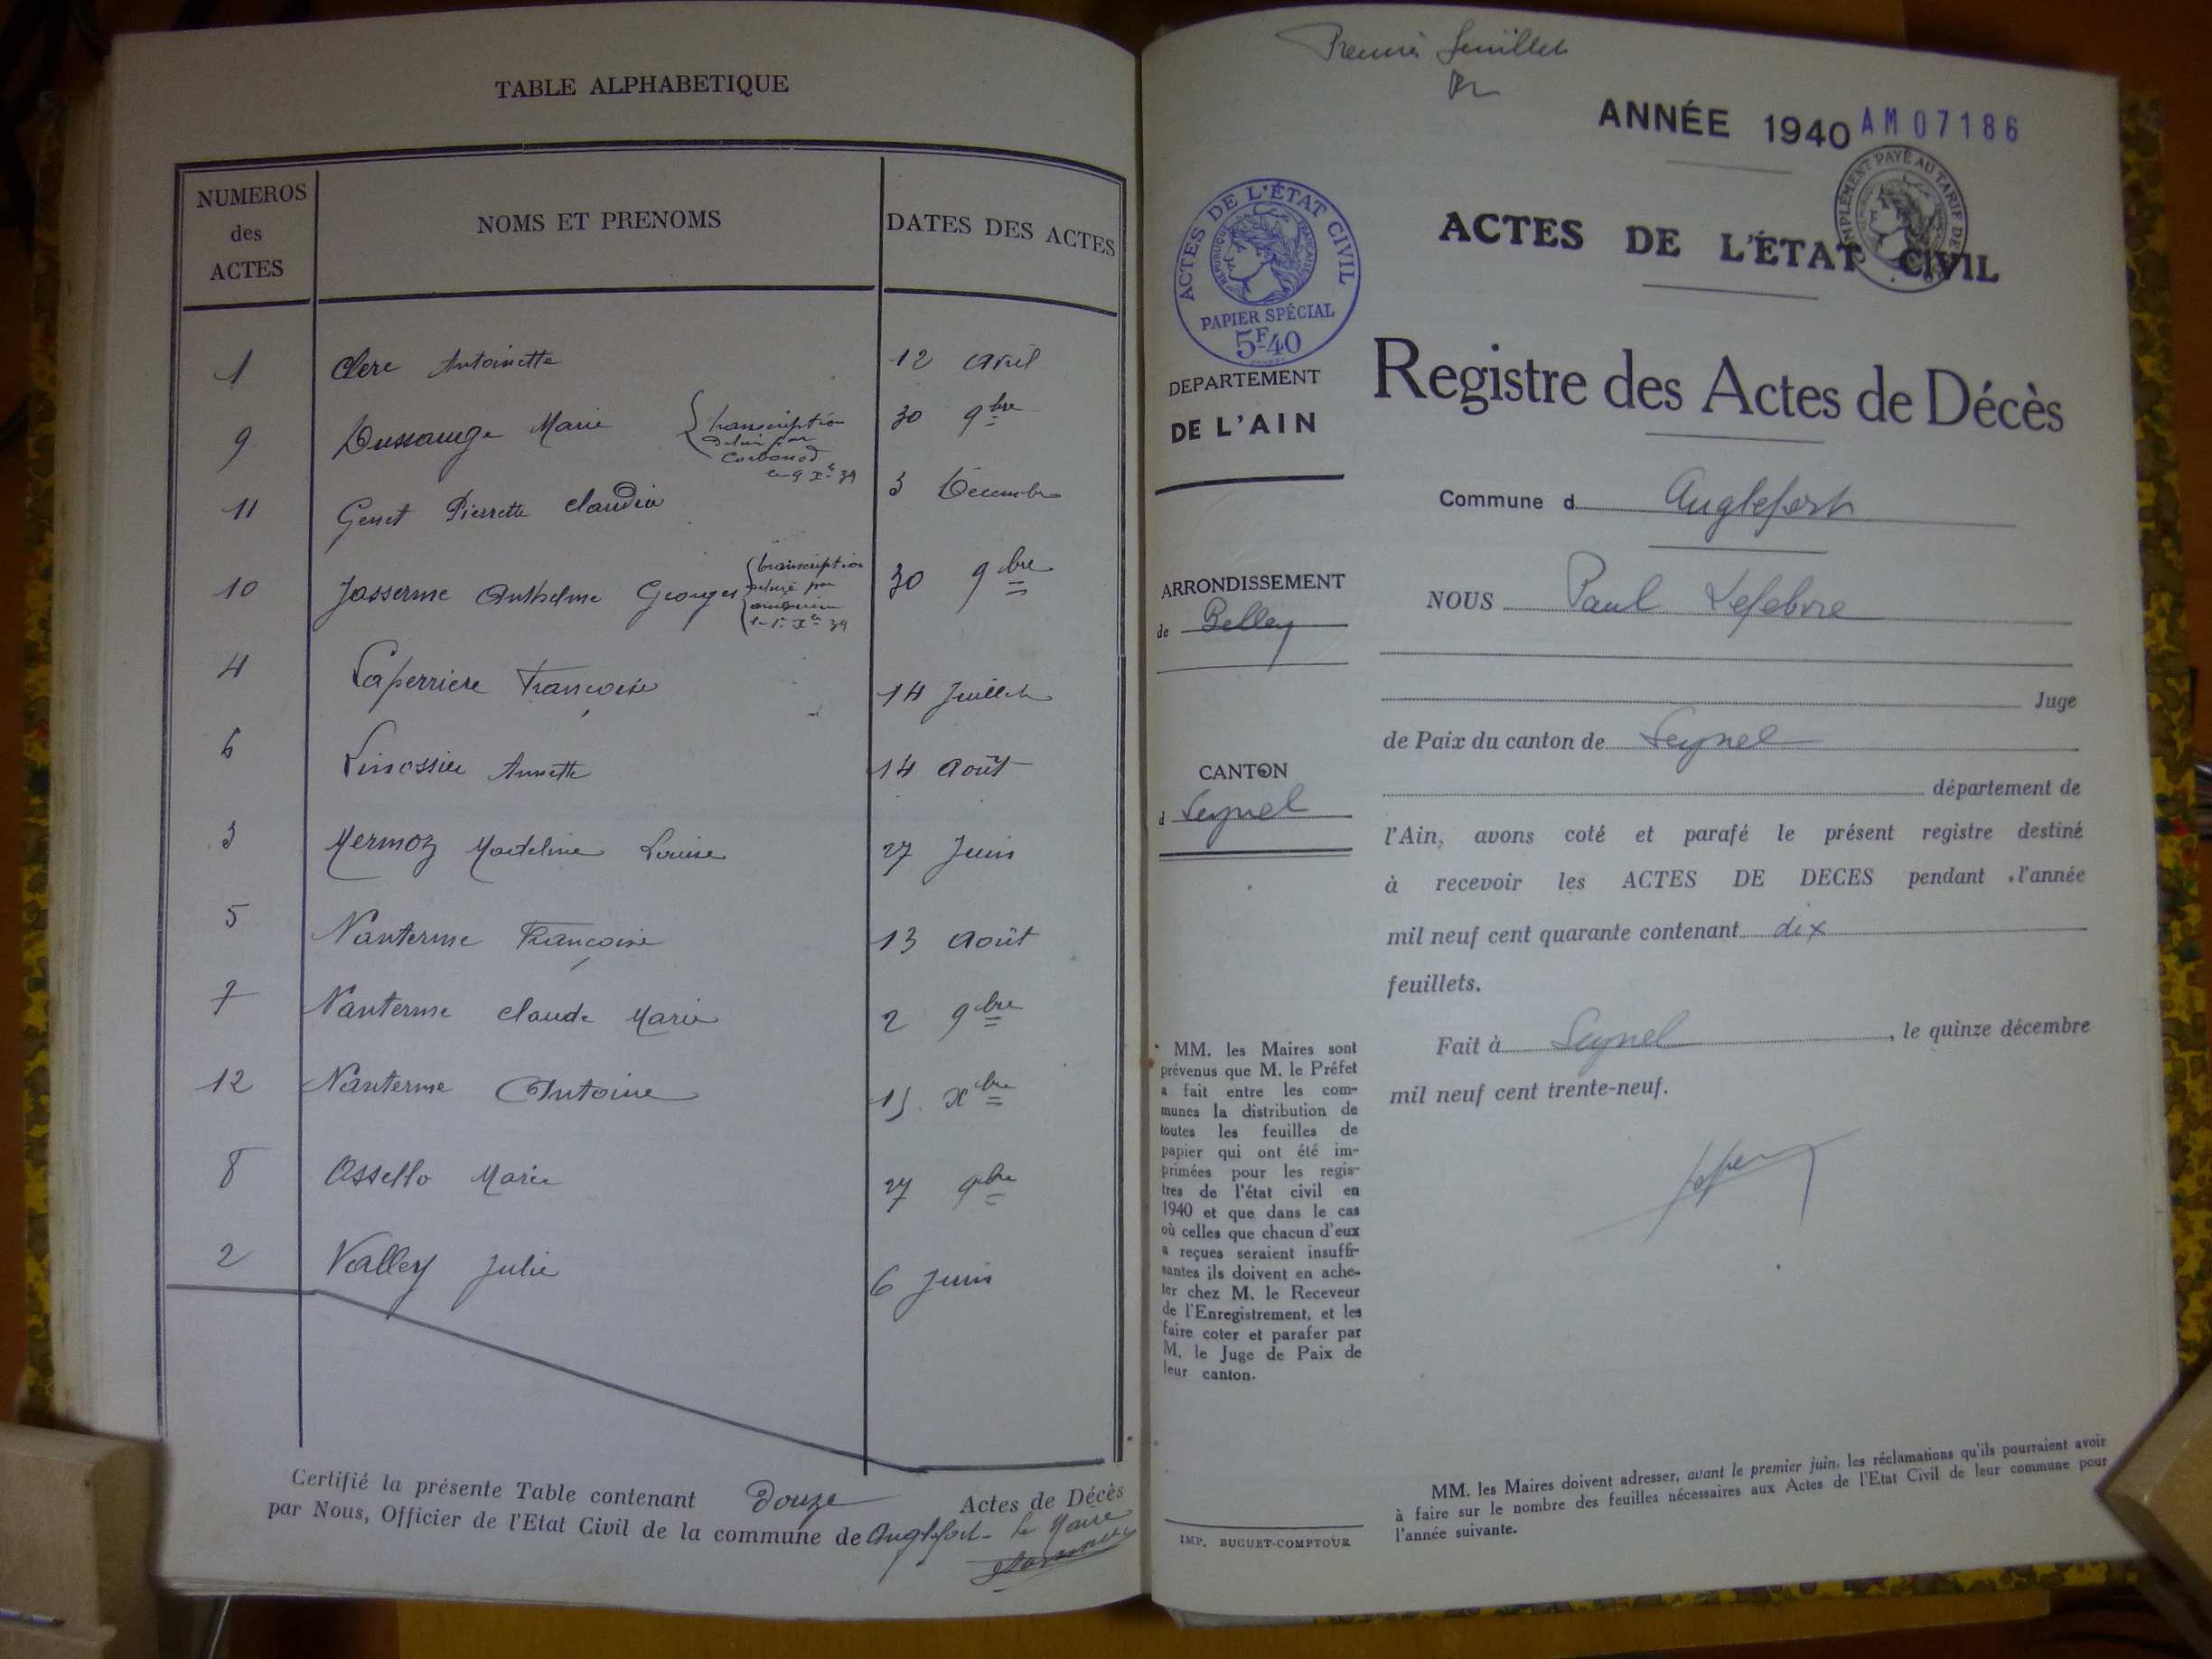 TABLE ALPHABETIQUE
NUMEROS
des
ACTES
NOMS ET PRENOMS
DATES DES ACTES
1 Clerc Antoinette 12 avril
9 Dussauge Marie 30 9bre
transcription
Corbonod
le 9 Xbre 39
11 Genet Pierrette Claudia 3 Décembre
10 Jasserme Anthelme Georges 30 9bre
transcription
le 1er Xbre 39
4 Laperriere Françoise 14 Juillet
6 Linossier Annette 14 Août
3 Mermoz Madeline Louise 27 Juin
5 Nanterme Françoise 13 Août
7 Nanterme Claude Marie 2 9bre
12 Nanterme Antoine 15 Xbre
8 Ossello Marie 27 9bre
2 Valley Julie 6 Juin
Certifié la présente Table contenant douze Actes de Décès
par Nous, Officier de l'Etat Civil de la commune de Anglefort - le Maire
Premier feuillet
ANNÉE 1940 AM 07186
ACTES DE L'ÉTAT CIVIL
RÉPUBLIQUE FRANÇAISE
PAPIER SPÉCIAL
5F40
PAYÉ AU TARIF DE
ACTES DE L'ÉTAT CIVIL
DEPARTEMENT
DE L'AIN
Registre des Actes de Décès
Commune d Anglefort
ARRONDISSEMENT
de Belley
NOUS Paul Lefebvre
Juge
de Paix du canton de Seyssel
CANTON
d Seyssel
département de
l'Ain, avons coté et parafé le présent registre destiné
à recevoir les ACTES DE DECES pendant l'année
mil neuf cent quarante contenant dix
feuillets.
Fait à Seyssel, le quinze décembre
mil neuf cent trente-neuf.
MM. les Maires sont
prévenus que M. le Préfet
a fait entre les com-
munes la distribution de
toutes les feuilles de
papier qui ont été im-
primées pour les regis-
tres de l'état civil en
1940 et que dans le cas
où celles que chacun d'eux
a reçues seraient insuffi-
santes ils doivent en ache-
ter chez M. le Receveur
de l'Enregistrement, et les
faire coter et parafer par
M. le Juge de Paix de
leur canton.
IMP. BUGUET-COMPTOUR
MM. les Maires doivent adresser, avant le premier juin, les réclamations qu'ils pourraient avoir
à faire sur le nombre des feuilles nécessaires aux Actes de l'Etat Civil de leur commune pour
l'année suivante.